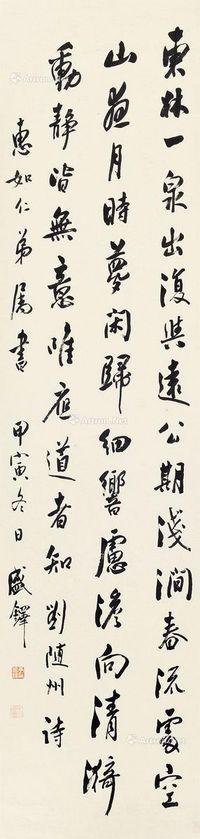 東林一泉出復與遠公期淺澗春流處空
山夜月時夢閑歸細響慮澹向清漪
動靜皆無意唯應道者知劉隨州詩
惠如仁弟屬書 甲寅冬日 盛鐸